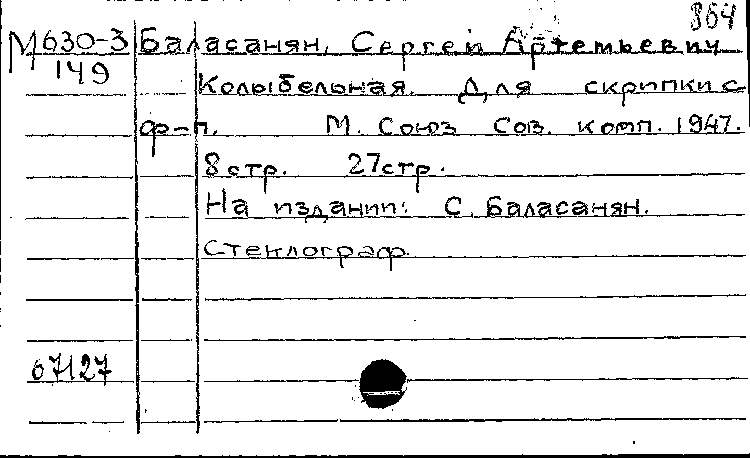 864
М630-3 Баласанян, Сергей Артемьевич
149
Колыбельная. Для скрипки с
ф-п. М. Союз Сов. комп. 1947.
8 стр. 27 стр.
На издании: С. Баласанян.
Стеклограф.
67127